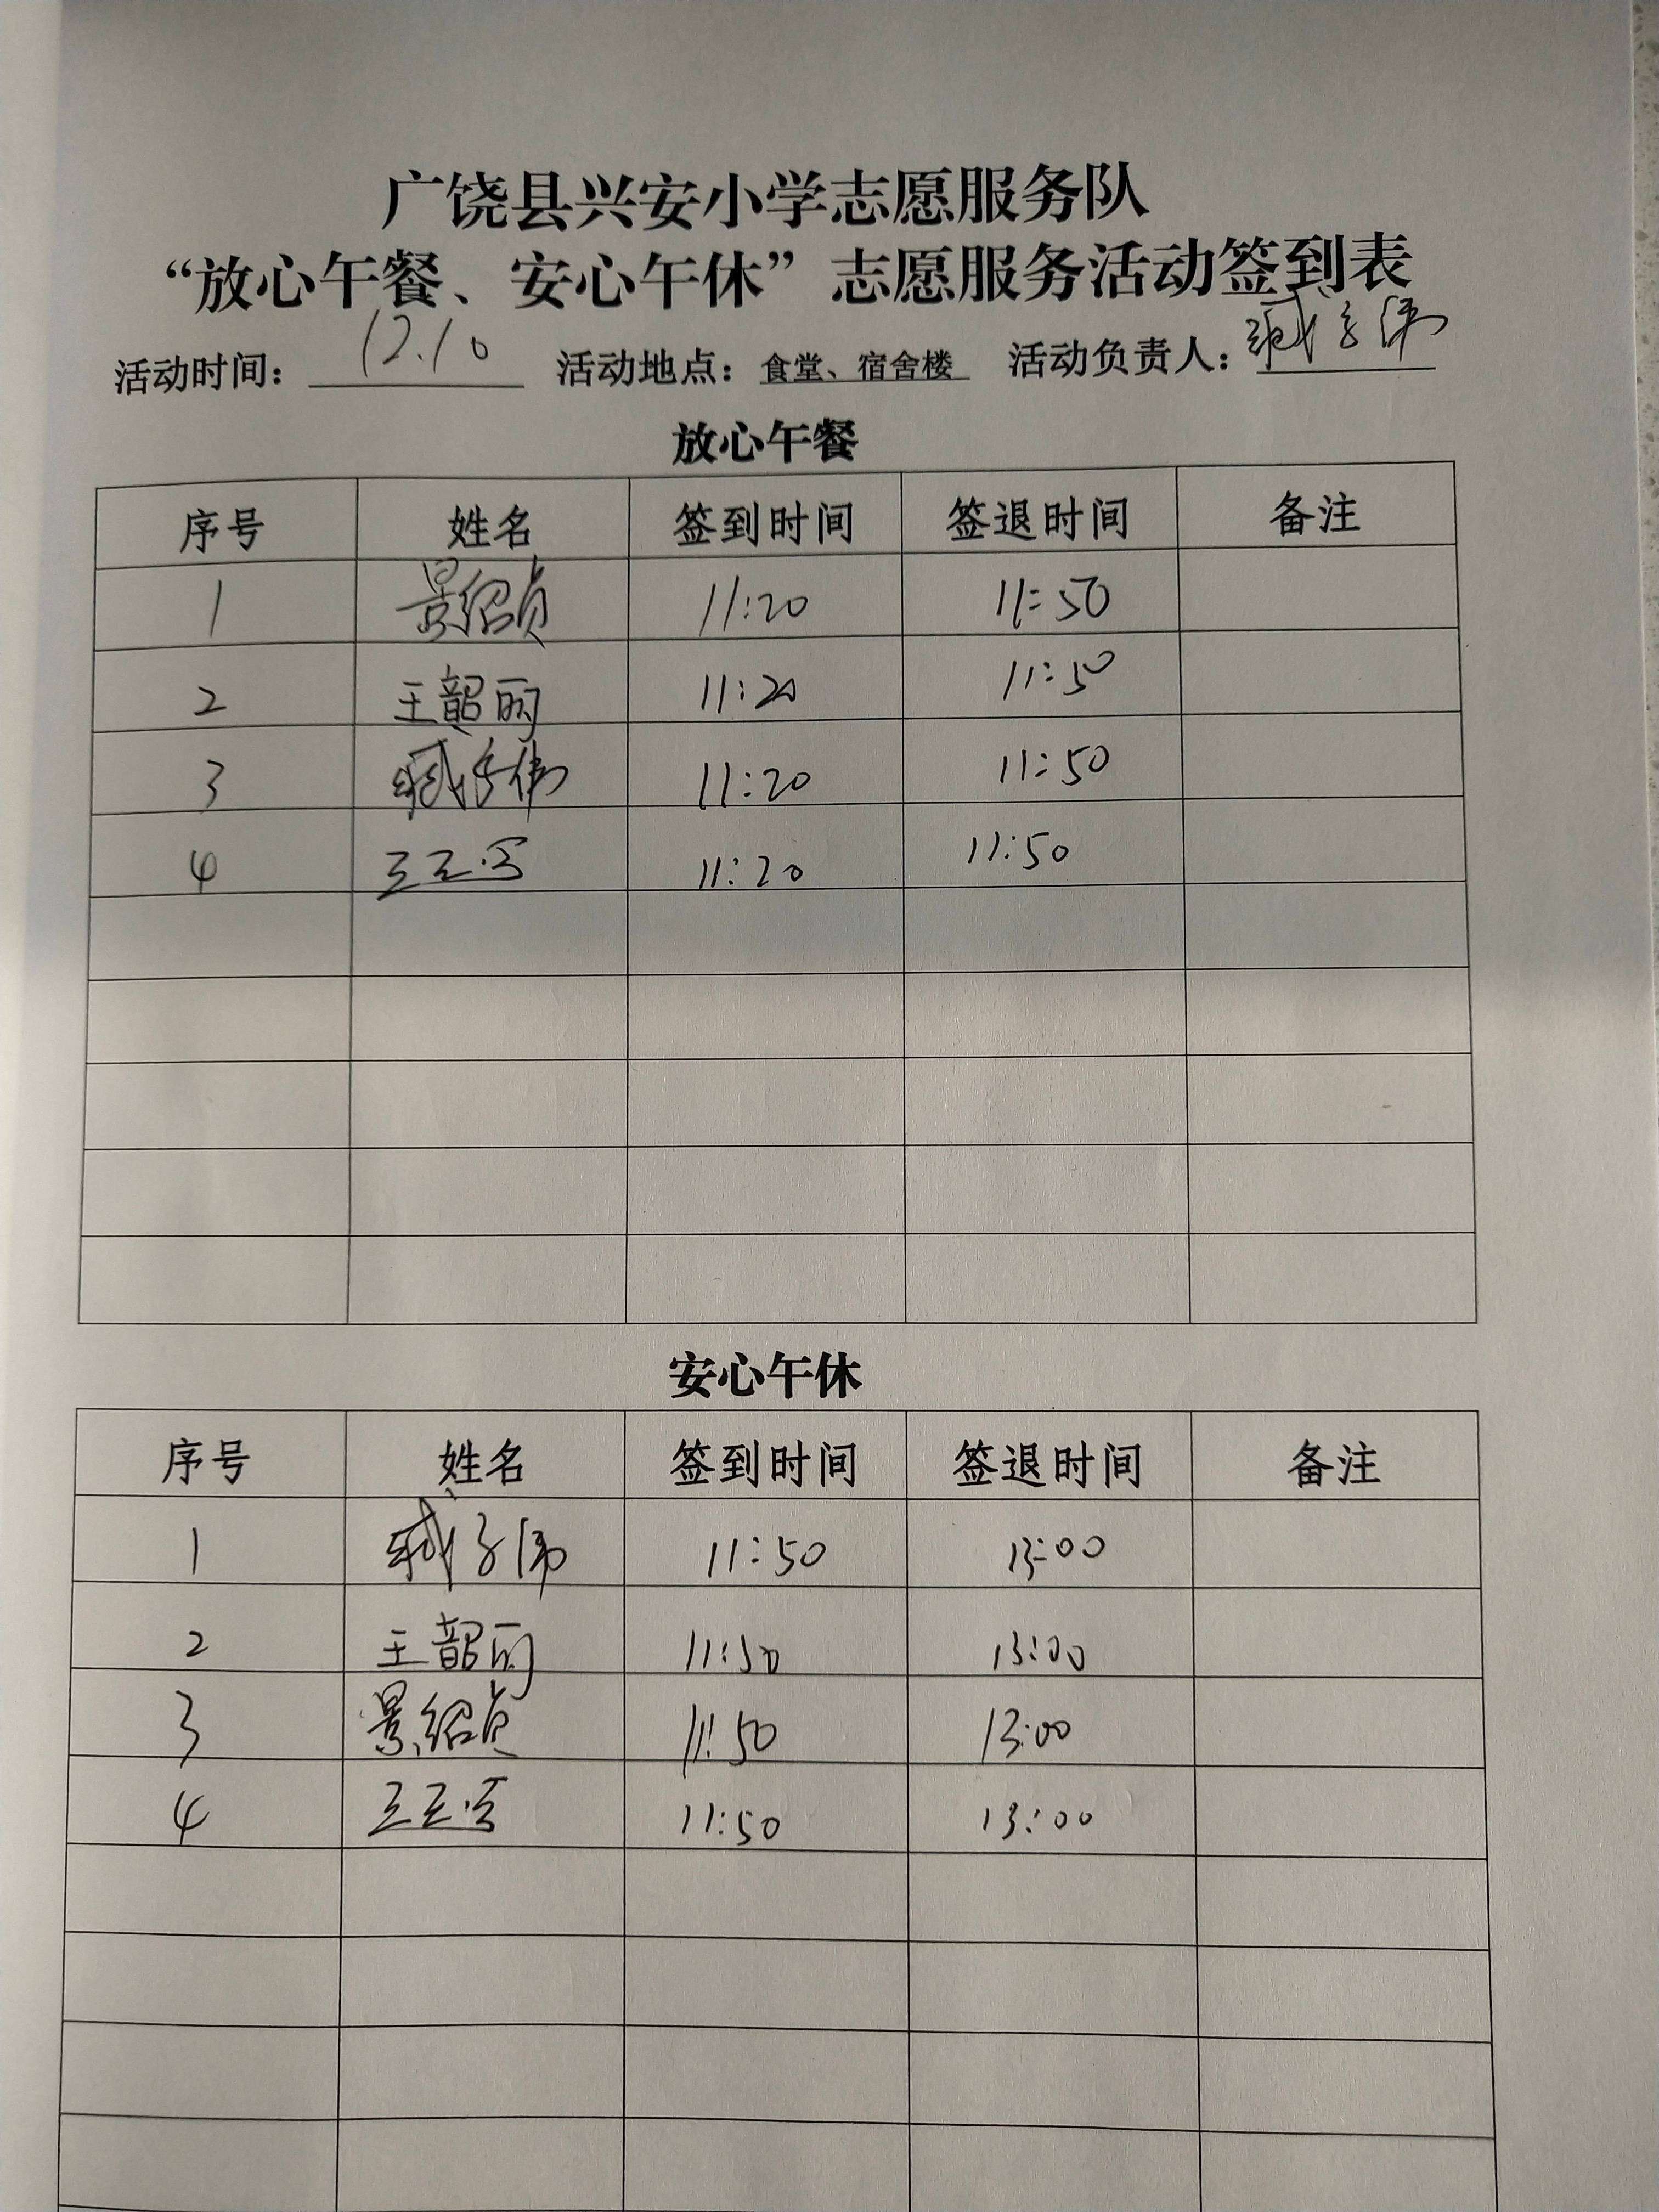 广饶县兴安小学志愿服务队
“放心午餐、安心午休”志愿服务活动签到表
活动时间：12.10 活动地点：食堂、宿舍楼 活动负责人：臧子伟
放心午餐
序号 姓名 签到时间 签退时间 备注
1 景绍贞 11:20 11:50
2 王韶丽 11:20 11:50
3 臧子伟 11:20 11:50
4 11:20 11:50
安心午休
序号 姓名 签到时间 签退时间 备注
1 臧子伟 11:50 13:00
2 王韶丽 11:50 13:00
3 景绍贞 11:50 13:00
4 11:50 13:00